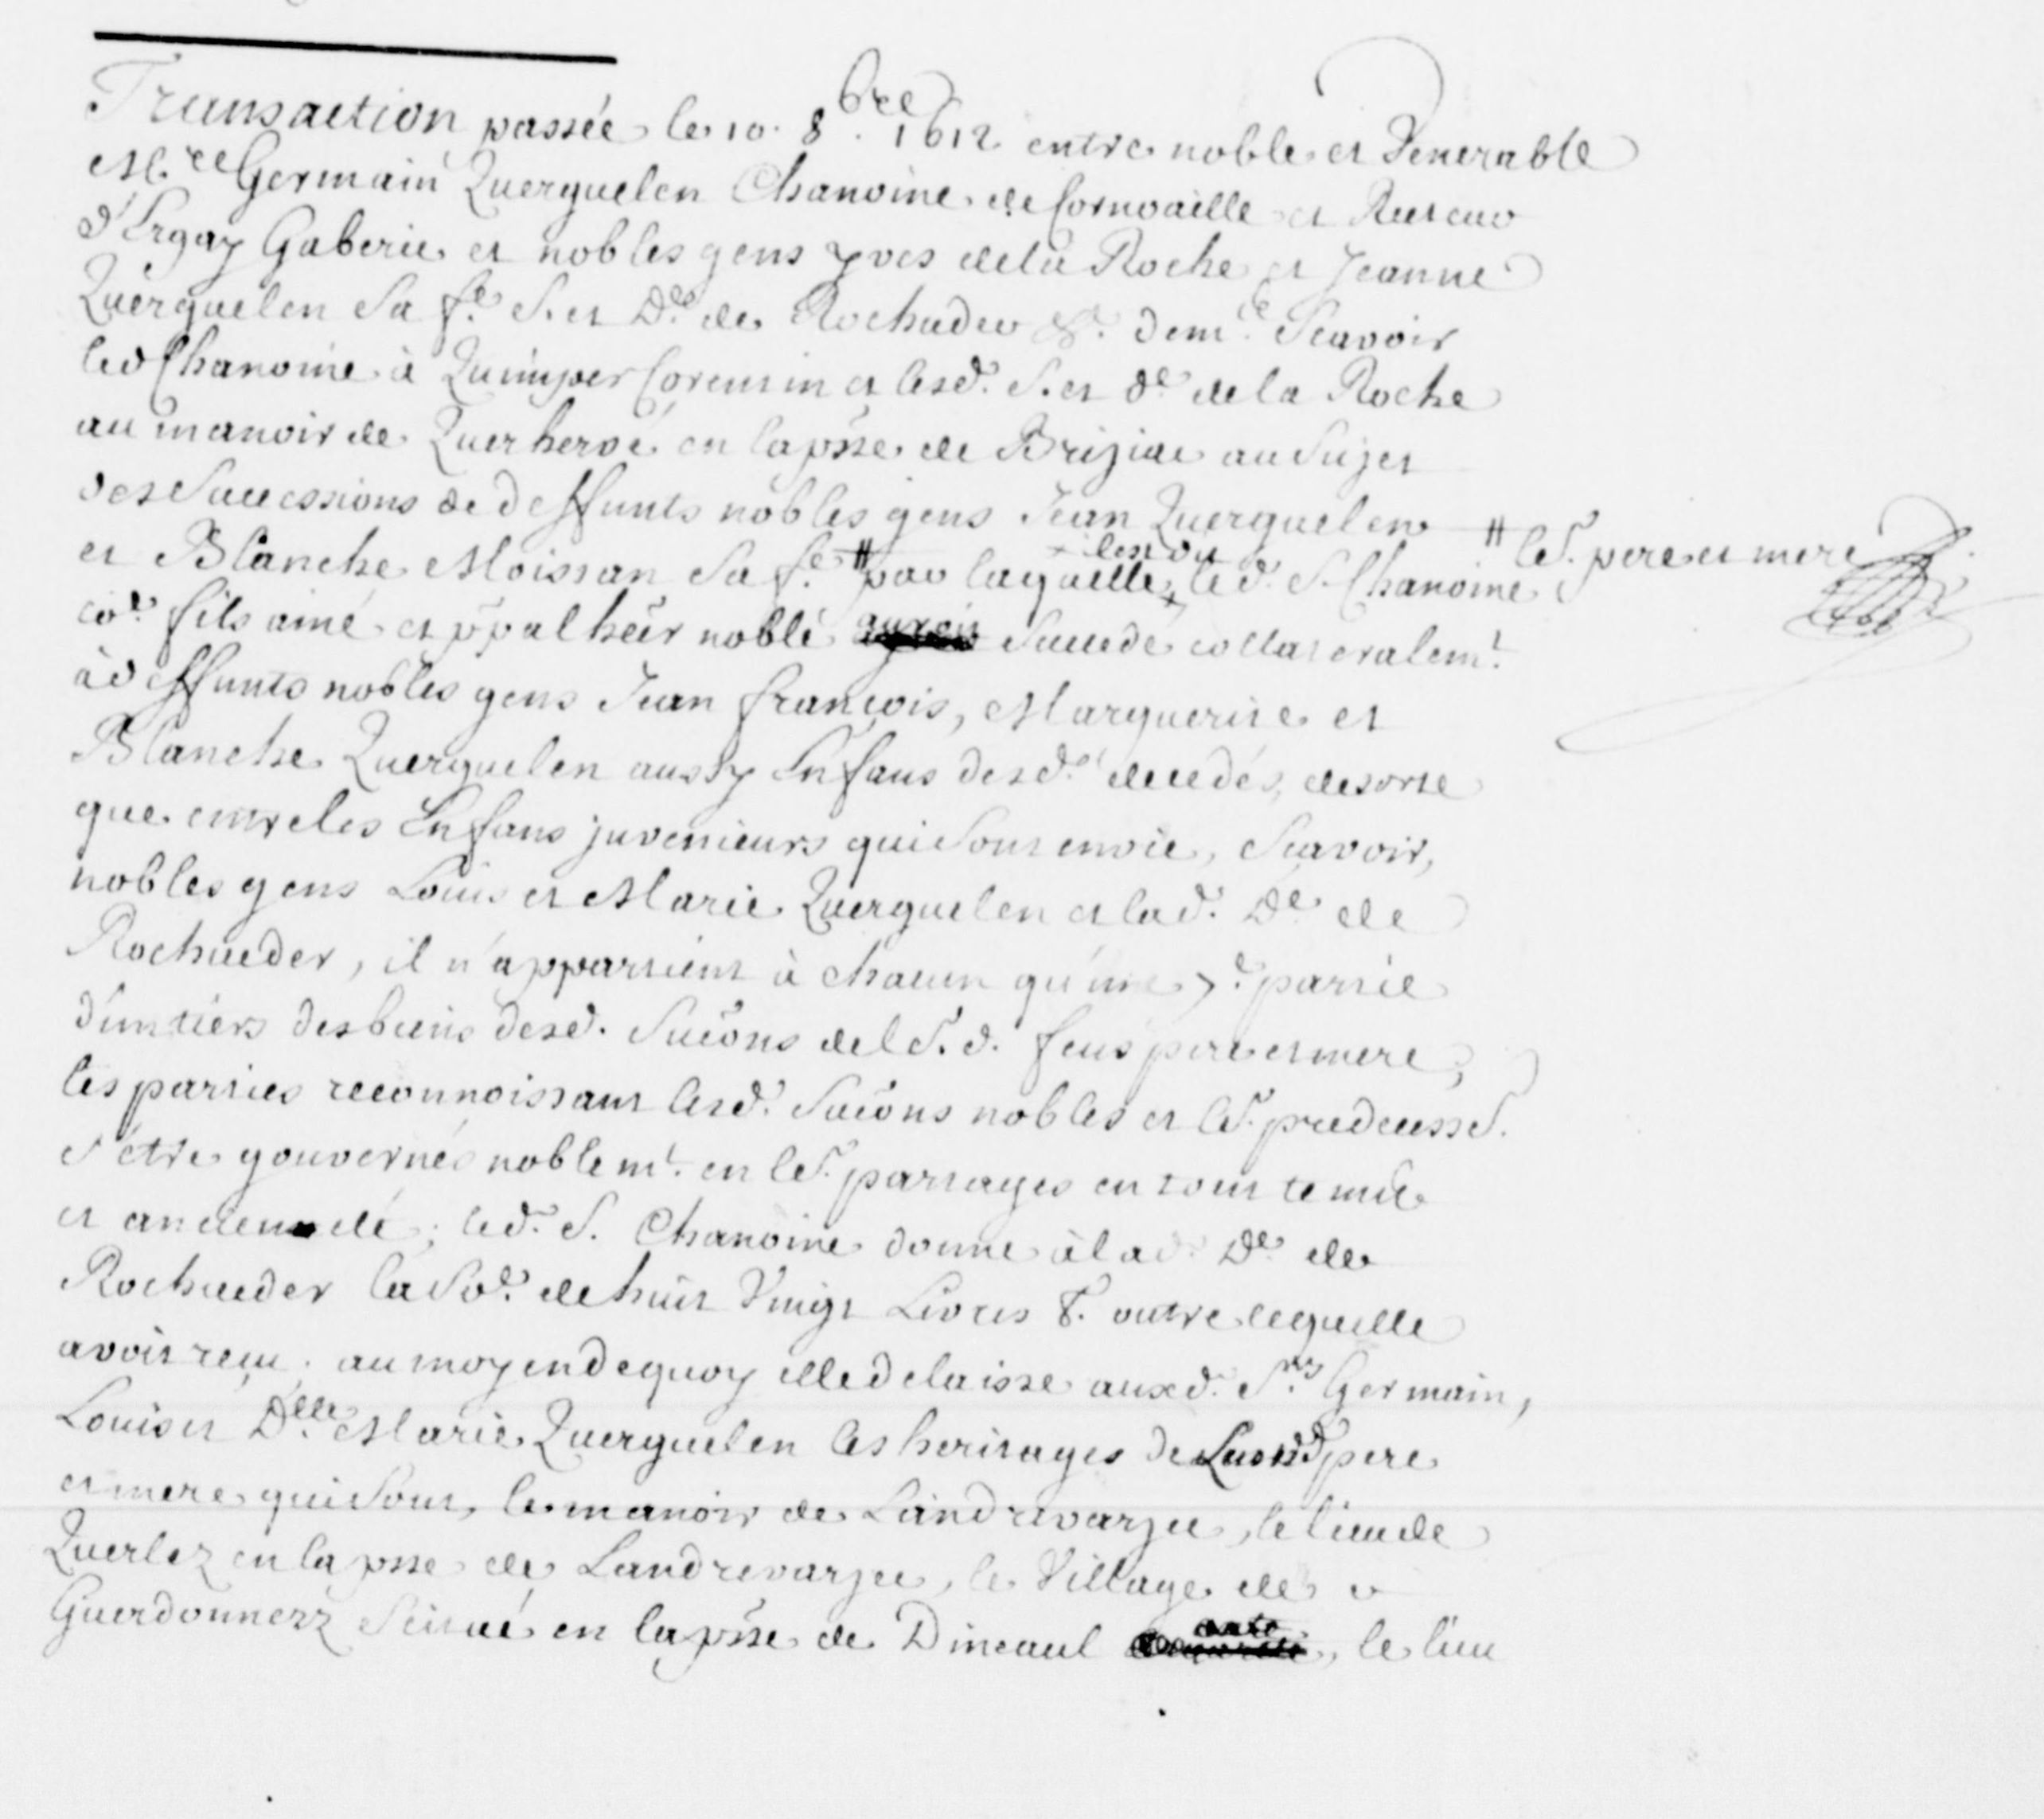 Transaction passée le 10. 8.bre 1612 entre noble et Venerable
M.re Germain Querguelen Chanoine de Cornoaille et Recteur
d'Ergay Gaberic et nobles gens Yves dela Roche et Jeanne
Querguelen Sa f.e S. et D.e de Rochader &. dem.te Scavoir
led Chanoine à Quimper Corentin et lesd. S. et d.e de la Roche
au manoir de Querhervé en la psse de Briziac au Sujet
des Successions de deffunts nobles gens Jean Querguelen
et Blanche Moissan Sa f.e # par laquelle + led. S. Chanoine # leS. pere et mere
+ il est dit
co.e fils ainé et ppal heër noble Succede collateralem.t
à deffunts nobles gens Jean françois, Marguerite et
Blanche Querguelen aussy Enfans desd. decedés, desorte
que entre les Enfans juvenieurs qui Sont envie, Scavoir,
nobles gens Louis et Marie Querguelen et lad. D.e de
Rochueder, il n'appartient à chacun qu'une 7.e partie
d'un tiers des biens desd. Sucõns de lS. d. feus pere et mere,
les parties reconnoissant lesd. Sucõns nobles et leS. predecesS.
S'etre gouvernés noblem.t en leS. partages en tout temps
et ancienneté; led. S. Chanoine donne à lad. D.e de
Rochueder la So.e de huit Vingt Livres t. outre lequelle
avoit reçu. au moyen dequoy elle delaisse auxd. S.rs Germain,
Louis et D.lle Marie Querguelen les heritages de Leursd. pere
et mere qui Sont, le manoir de Landrevarzec, le lieu de
Querlez en la psse de Landrevarzec, le Village de
Guerdonnerz Scitué en la psse de Dineaul, le lieu